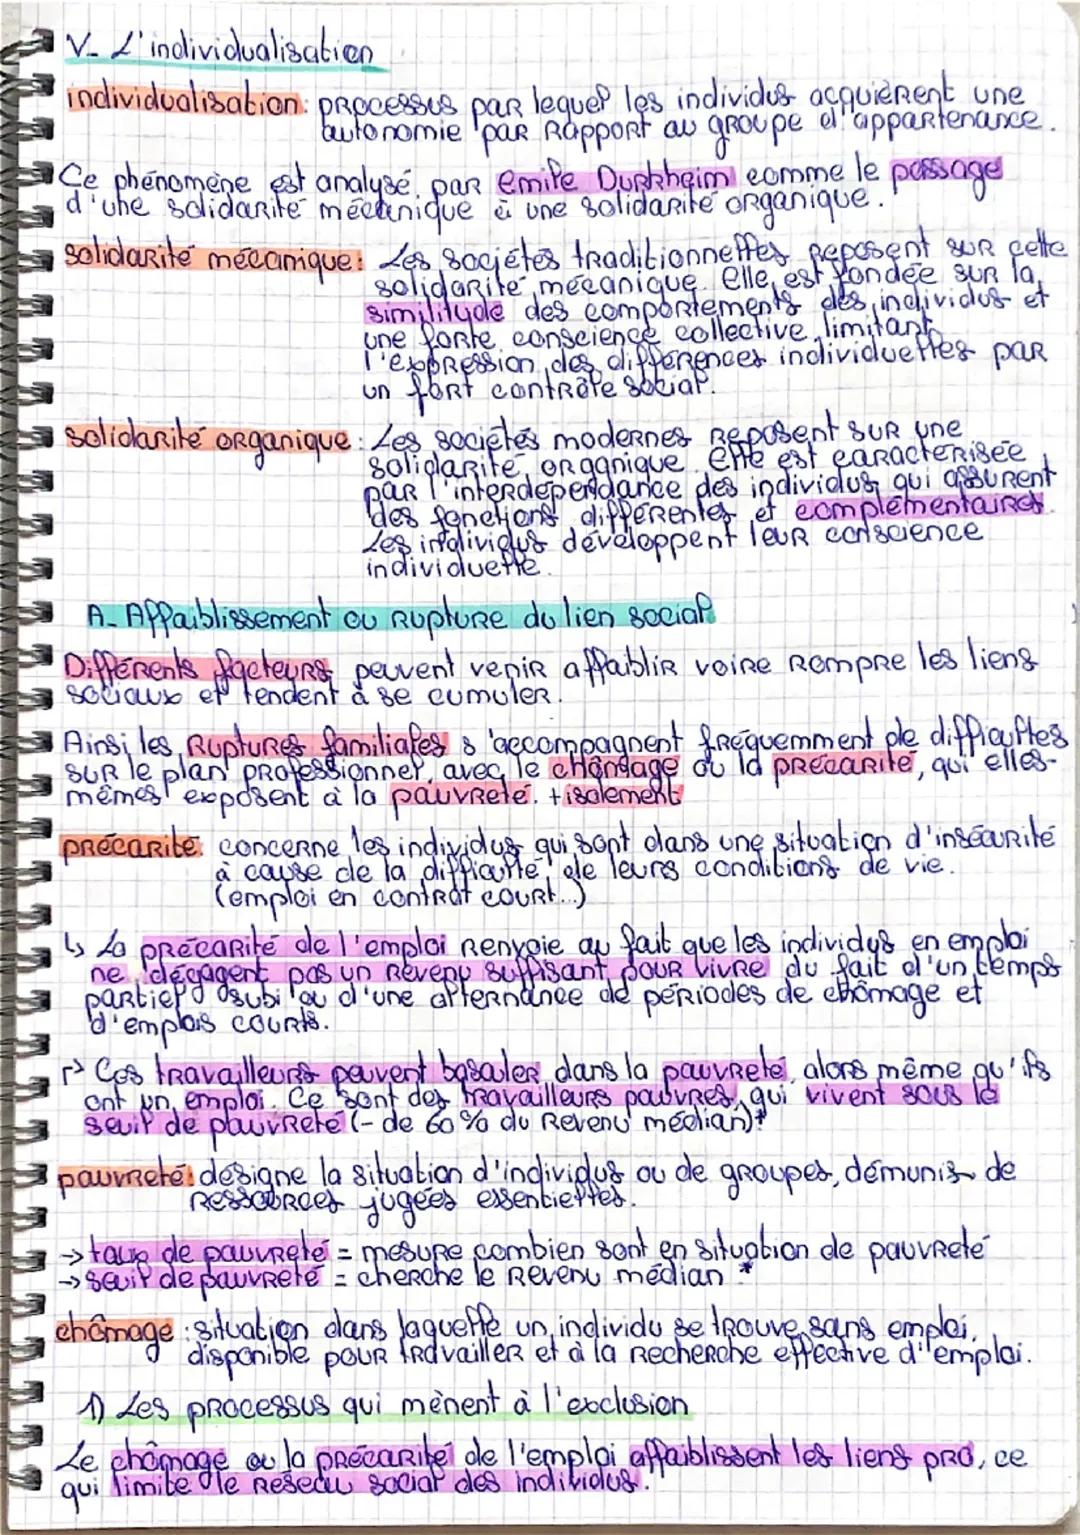 V_ L'individualisation
individualisation: processus par lequel les individus acquièrent une
autonomie par rapport au groupe d'appartenance.
Ce phénomène est analysé par Emile Durkheim comme le passage
d'une solidarité mécanique à une solidarité organique.
solidarité mécanique: Les sociétés traditionnelles reposent sur cette
solidarité mécanique. Elle est fondée sur la
similitude des comportements des individus et
une forte conscience collective limitant
l'expression des différences individuelles par
un fort contrôle social.
solidarité organique: Les sociétés modernes reposent sur une
solidarité organique. Elle est caractérisée
par l'interdépendance des individus qui assurent
des fonctions différentes et complémentaires.
Les individus développent leur conscience
individuelle.
A_ Affaiblissement ou rupture du lien social
Différents facteurs peuvent venir affaiblir voire rompre les liens
sociaux et tendent à se cumuler.
Ainsi, les ruptures familiales s'accompagnent fréquemment de difficultés
sur le plan professionnel, avec le chômage ou la précarité, qui elles-
mêmes exposent à la pauvreté. +isolement
précarité: concerne les individus qui sont dans une situation d'insécurité
à cause de la difficulté de leurs conditions de vie.
(emploi en contrat court...)
↳ La précarité de l'emploi renvoie au fait que les individus en emploi
ne dégagent pas un revenu suffisant pour vivre du fait d'un temps
partiel subi ou d'une alternance de périodes de chômage et
d'emplois courts.
↱ Ces travailleurs peuvent basculer dans la pauvreté, alors même qu'ils
ont un emploi. Ce sont des travailleurs pauvres, qui vivent sous le
seuil de pauvreté (- de 60% du revenu médian)*
pauvreté: désigne la situation d'individus ou de groupes, démunis de
ressources jugées essentielles.
→ taux de pauvreté = mesure combien sont en situation de pauvreté
→ seuil de pauvreté = cherche le revenu médian *
chômage: situation dans laquelle un individu se trouve sans emploi,
disponible pour travailler et à la recherche effective d'emploi.
1) Les processus qui mènent à l'exclusion
Le chômage ou la précarité de l'emploi affaiblissent les liens pro, ce
qui limite le réseau social des individus.